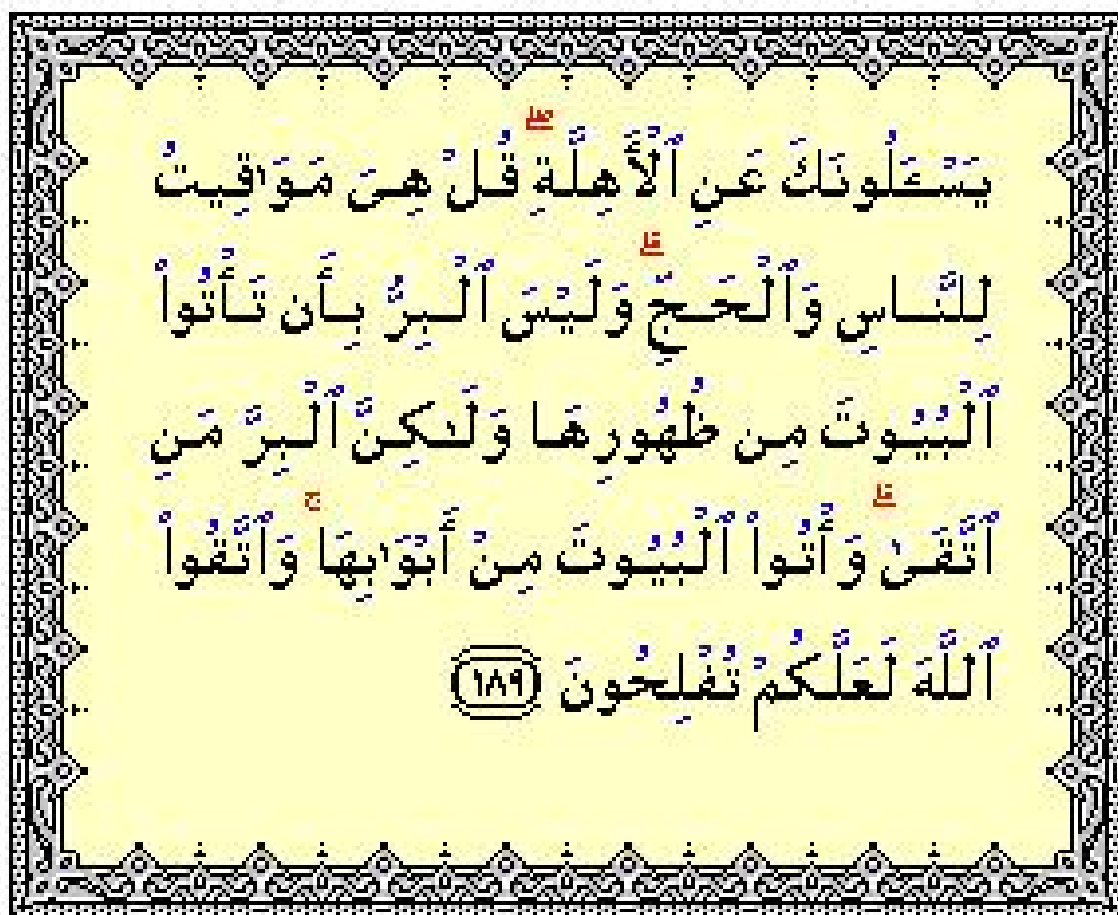 يَسْـَٔلُونَكَ عَنِ ٱلْأَهِلَّةِ ۖ قُلْ هِىَ مَوَٰقِيتُ
لِلنَّاسِ وَٱلْحَجِّ ۗ وَلَيْسَ ٱلْبِرُّ بِأَن تَأْتُوا۟
ٱلْبُيُوتَ مِن ظُهُورِهَا وَلَـٰكِنَّ ٱلْبِرَّ مَنِ
ٱتَّقَىٰ ۗ وَأْتُوا۟ ٱلْبُيُوتَ مِنْ أَبْوَٰبِهَا ۚ وَٱتَّقُوا۟
ٱللَّهَ لَعَلَّكُمْ تُفْلِحُونَ ١٨٩